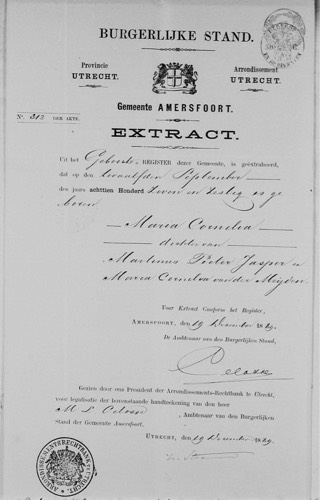 BURGERLIJKE STAND.
Provincie
UTRECHT.
Arrondissement
UTRECHT.
Gemeente AMERSFOORT.
EXTRACT.
N°. 313 DER AKTE.
Uit het Geboorte-REGISTER dezer Gemeente, is geëxtraheerd,
dat op den twaalfden September
des jaars achttien Honderd zeven en zestig is ge
boren
Maria Cornelia
dochter van
Martinus Pieter Jasper en
Maria Cornelia van der Meijden
Voor Extract Conform het Register,
AMERSFOORT, 19 December 1889.
De Ambtenaar van den Burgerlijken Stand,
Gezien door ons President der Arrondissements-Rechtbank te Utrecht,
voor legalisatie der bovenstaande handteekening van den heer
Ambtenaar van den Burgerlijken
Stand der Gemeente Amersfoort.
UTRECHT, 19 December 1889.